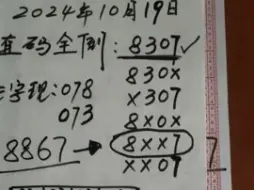 2024年10月19日
直码全倒：8307✓
830X
字现：078
X307
073
8X0X
8867→8XX7
7
XX07